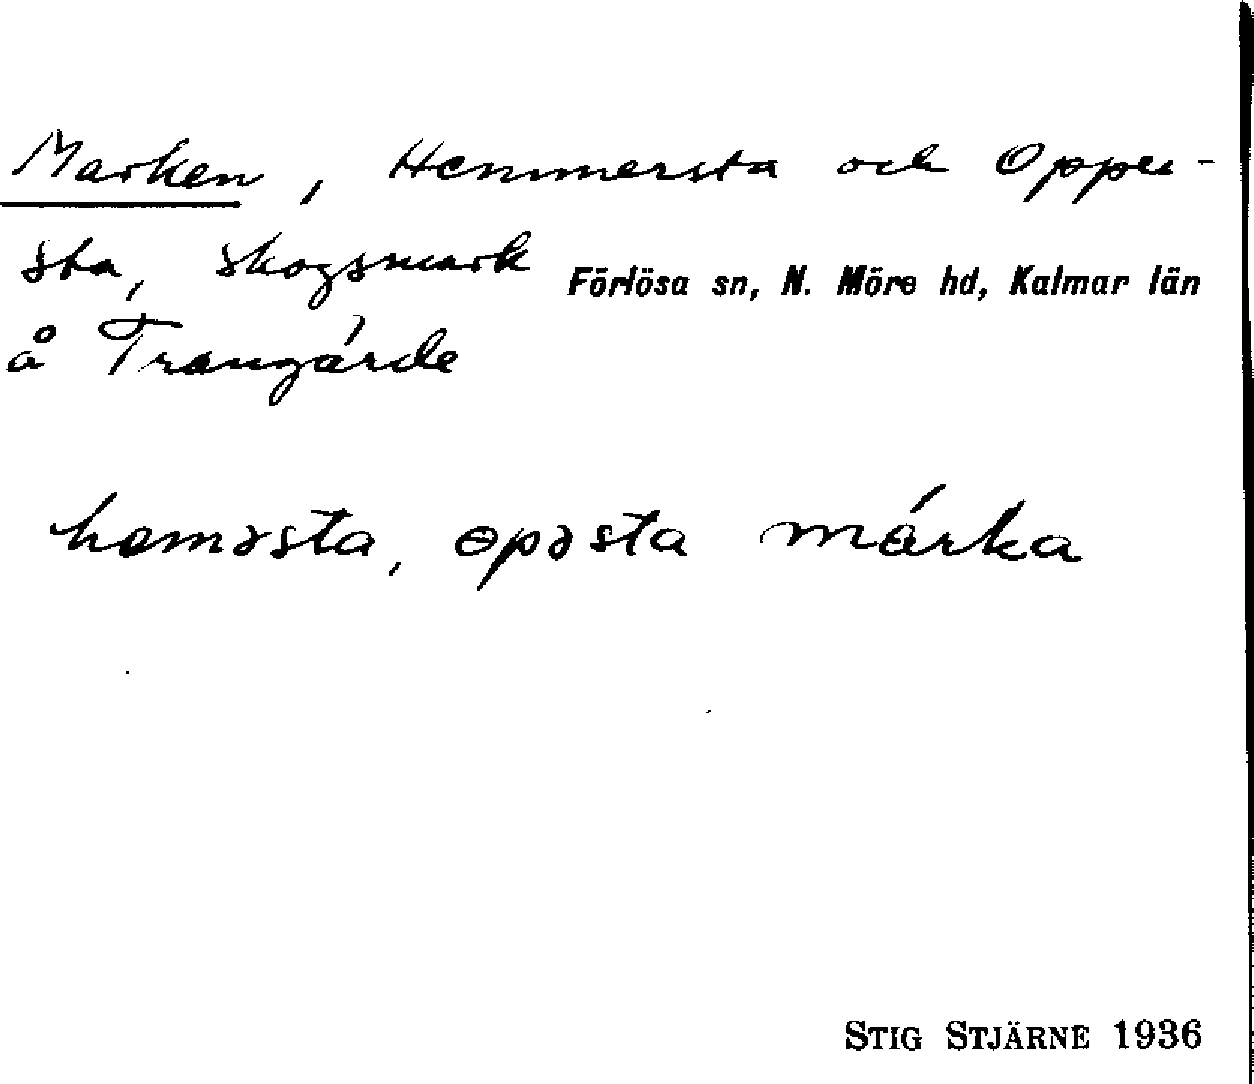 Marken, Hemmersta och Opper-
sta, skogsmark Förlösa sn, N. Möre hd, Kalmar län
å Trångärde
heməsta, ɵpəsta márka
STIG STJÄRNE 1936